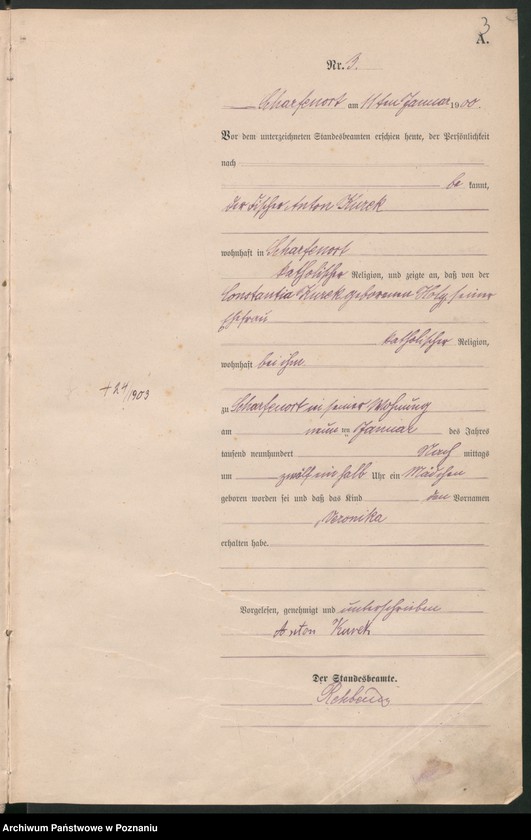 3
A.
Nr. 3.
Scharfenort am 11ten Januar 1900.
Vor dem unterzeichneten Standesbeamten erschien heute, der Persönlichkeit
nach
be kannt,
der Tischler Anton Kurek
wohnhaft in Scharfenort
katholischer Religion, und zeigte an, daß von der
Constantia Kurek geborenen seiner
Ehefrau
katholischer Religion,
wohnhaft bei ihm
zu Scharfenort in seiner Wohnung
am neun ten Januar des Jahres
tausend neunhundert Nach mittags
um zwölf ein halb Uhr ein Mädchen
geboren worden sei und daß das Kind den Vornamen
Veronika
erhalten habe.
+ 24/1903
Vorgelesen, genehmigt und unterschrieben
Anton Kurek
Der Standesbeamte.
Archiwum Państwowe w Poznaniu